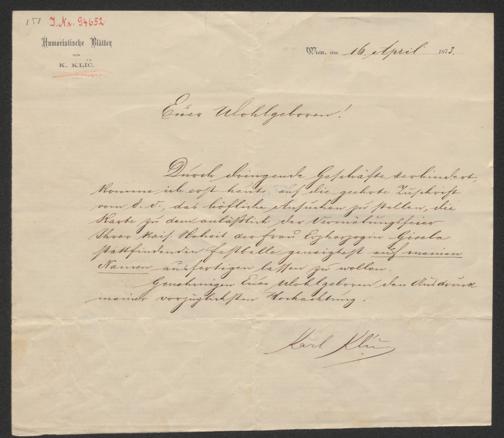 151 J. Nr. 94652
Humoristische Blätter
von
K. KLIČ.
Wien, am 16 April 1873.
Euer Wohlgeboren!
Durch dringende Geschäfte verhindert,
komme ich erst heute, auf die geehrte Zuschrift
vom d. M., das höfliche Ansuchen zu stellen, die
Karte zu dem anläßlich der Vermälungsfeier
Ihrer kais Hoheit der Frau Erzherzogin Gisela
stattfindenden Festballe geneigtest auf meinen
Namen ausfertigen lassen zu wollen.
Genehmigen Euer Wohlgeboren den Ausdruck
meiner vorzüglichsten Hochachtung.
Karl Klič